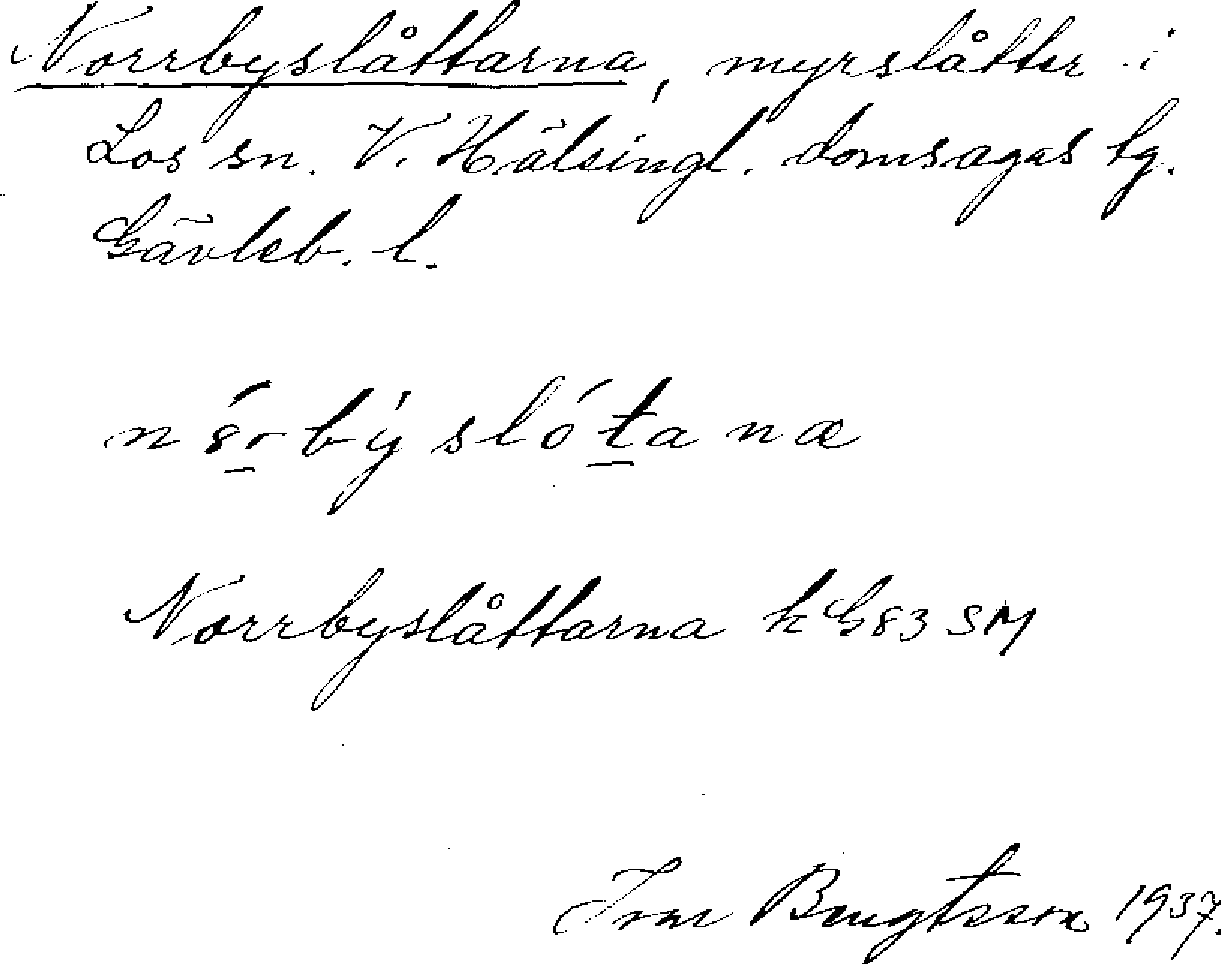 Norrbyslåttarna, myrslåtter i
Los sn. V. Hälsingl. domsagas tg.
Gävleb. l.
n ó̱r b ý s l ó ṯ a n æ
Norrbyslåttarna k G83 SM
Ivar Bengtsson 1937.